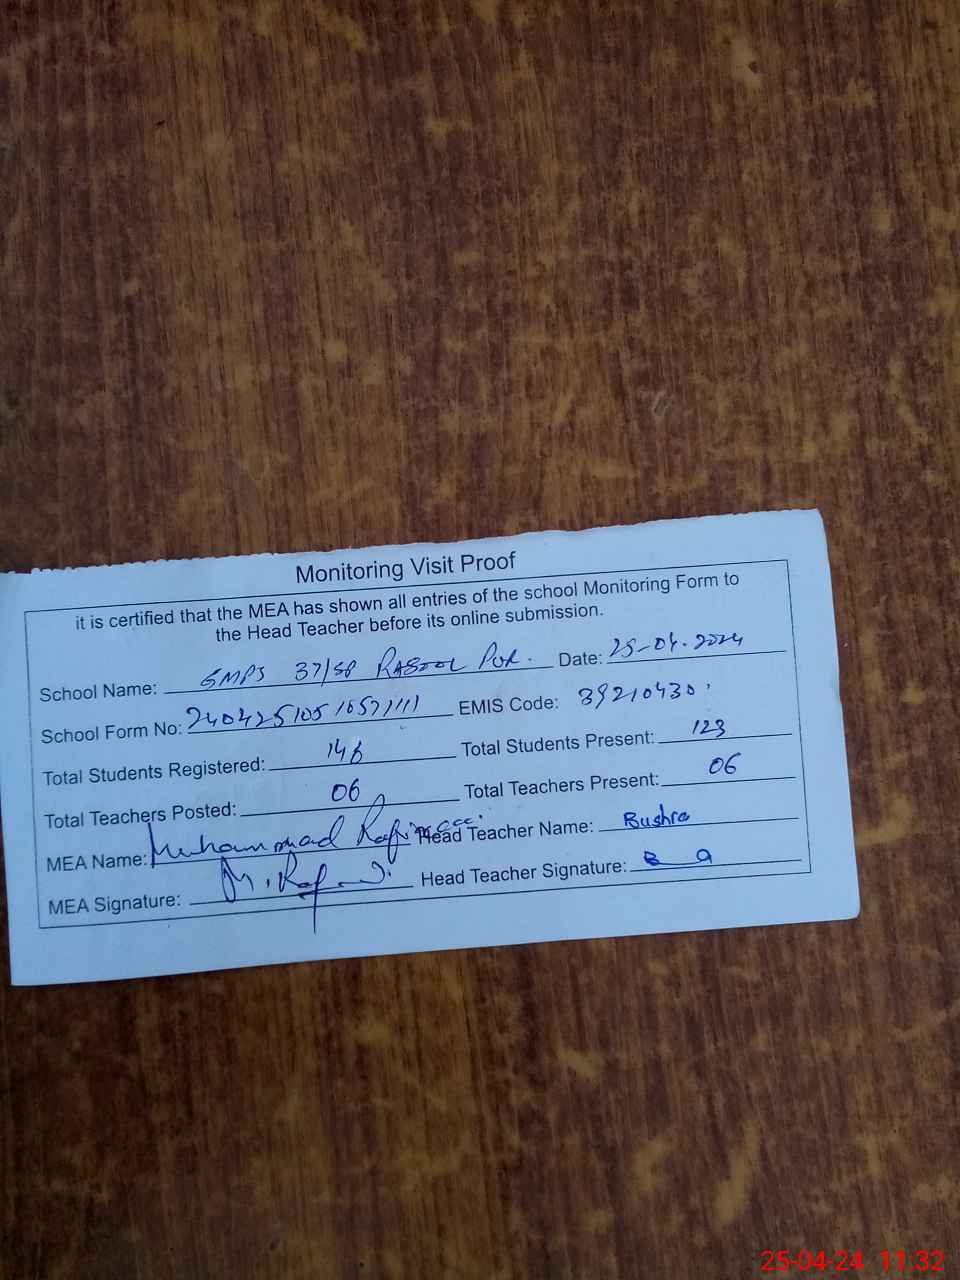 Monitoring Visit Proof
it is certified that the MEA has shown all entries of the school Monitoring Form to
the Head Teacher before its online submission.
School Name: GMPS 37/SP RASOOL PUR. Date: 25-04-2024
School Form No: EMIS Code: 39210430
Total Students Registered: 146 Total Students Present: 123
Total Teachers Posted: 06 Total Teachers Present: 06
MEA Name: Muhammad Head Teacher Name: Bushra
MEA Signature: Head Teacher Signature: B a
25-04-24 11:32